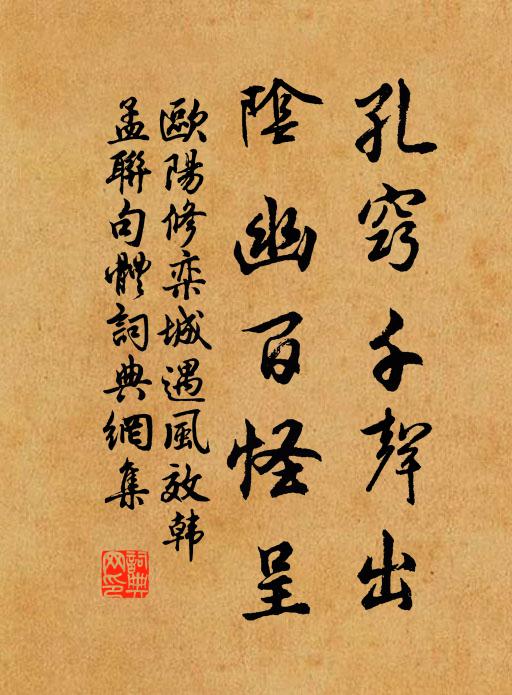 孔窍千聲出
陰幽百怪呈
歐陽修栾城遇風效韩
孟聯句體詞典網集
詞典
网印